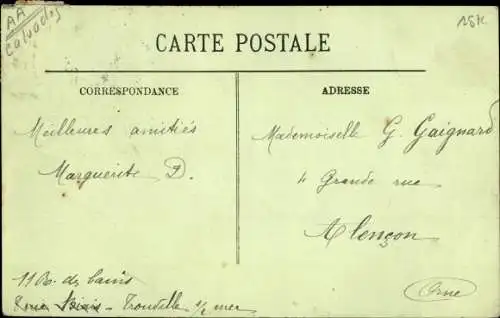 AA
Calvados
CARTE POSTALE
CORRESPONDANCE
ADRESSE
Meilleures amitiés
Marguerite D.
Mademoiselle G. Gaignard
4 Grande rue
Alençon
Orne
des bains
Trouville s/ mer